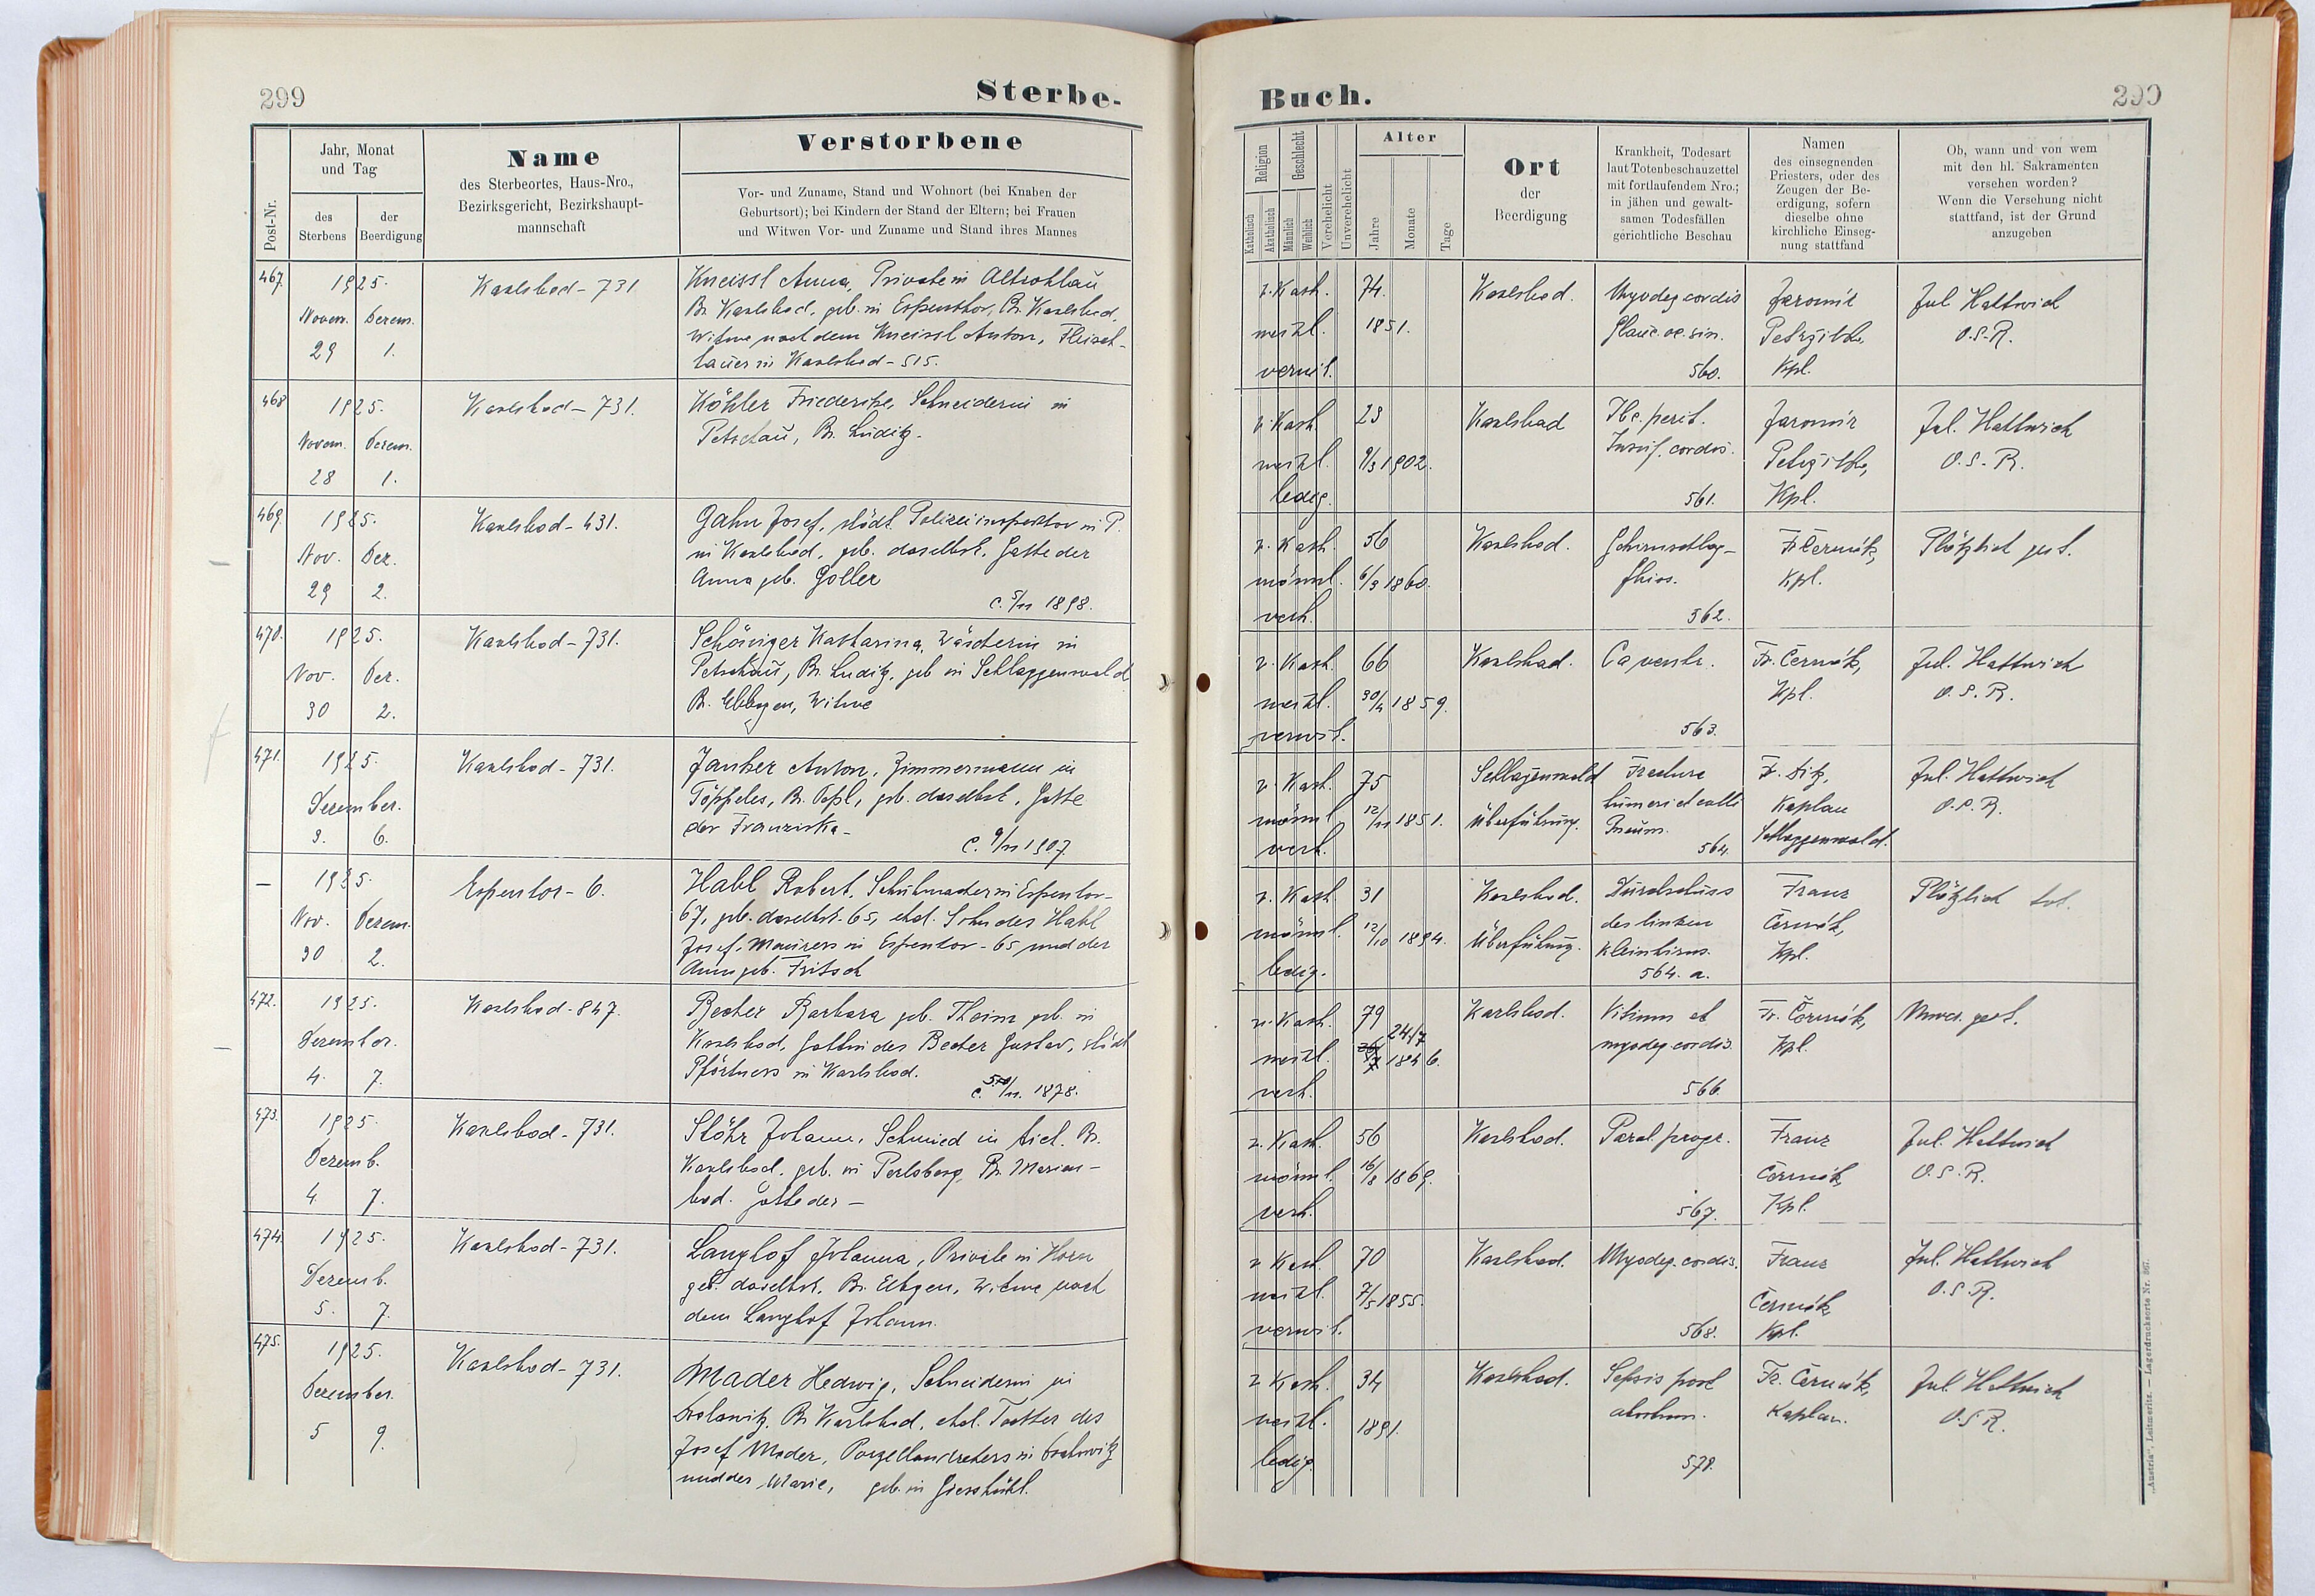 299
Sterbe-
Post-Nr.
Jahr, Monat
und Tag
des
Sterbens
der
Beerdigung
Name
des Sterbeortes, Haus-Nro.,
Bezirksgericht, Bezirkshaupt-
mannschaft
Verstorbene
Vor- und Zuname, Stand und Wohnort (bei Knaben der
Geburtsort); bei Kindern der Stand der Eltern; bei Frauen
und Witwen Vor- und Zuname und Stand ihres Mannes
467.
1925.
Novem. Dezem.
29 1.
Karlsbad - 731
Kneissl Anna, Private in Altrohlau
Br. Karlsbad, geb. in Espenthor, Br. Karlsbad,
Witwe nach dem Kneissl Anton, Fleisch-
hauer in Karlsbad - 515.
468
1925.
Novem. Dezem.
28 1.
Karlsbad - 731.
Köhler Friederike, Schneiderin in
Petschau, Br. Luditz.
469.
1925.
Nov. Dez.
29 2.
Karlsbad - 431.
Gahn Josef, städt. Polizeiinspektor in P.
in Karlsbad, geb. daselbst, Gatte der
Anna geb. Goller
C. 5/11 1898.
470.
1925.
Nov. Dez.
30 2.
Karlsbad - 731.
Katharina, Wäscherin in
Petschau, Br. Luditz, geb in Schlaggenwald
Br. Elbogen, Witwe
471.
1925.
Dezember.
3. 6.
Karlsbad - 731.
Anton, Zimmermann in
Töppeles, Br. Tepl, geb. daselbst, Gatte
der Franziska -
C. 9/11 1907.
—
1925.
Nov. Dezem.
30 2.
Espentor - 6.
Habl Robert, Schuhmacher in Espentor-
67, geb. daselbst - 65, ehel. Sohn des Habl
Josef, Maurers in Espentor - 65 und der
Anna geb. Fritsch
472.
1925.
Dezember.
4. 7.
Karlsbad - 847.
Becher Barbara geb. Theim geb. in
Karlsbad, Gattin des Becher Gustav, städt
Pförtners in Karlsbad.
1878.
473.
1925.
Dezemb.
4. 7.
Karlsbad - 731.
Stöhr Johann, Schmied in Aich, Br.
Karlsbad, geb. in Perlsberg, Br. Marien-
bad. Gatte der -
474.
1925.
Dezemb.
5. 7.
Karlsbad - 731.
Langhof Johanna, Private in Horn
geb. daselbst, Br. Elbogen, Witwe nach
dem Langhof Johann.
475.
1925.
Dezember.
5 9.
Karlsbad - 731.
Mader Hedwig, Schneiderin in
Br Karlsbad, ehel. Tochter des
Josef Mader, Porzellandrehers in
und der Marie, geb. in Giesshübl.
Buch.
299
Religion
Katholisch
Akatholisch
Geschlecht
Männlich
Weiblich
Verehelicht
Unverehelicht
Alter
Jahre
Monate
Tage
Ort
der
Beerdigung
Krankheit, Todesart
laut Totenbeschauzettel
mit fortlaufendem Nro.;
in jähen und gewalt-
samen Todesfällen
gerichtliche Beschau
Namen
des einsegnenden
Priesters, oder des
Zeugen der Be-
erdigung, sofern
dieselbe ohne
kirchliche Einseg-
nung stattfand
Ob, wann und von wem
mit den hl. Sakramenten
versehen worden?
Wenn die Versehung nicht
stattfand, ist der Grund
anzugeben
r. Kath.
weibl.
verwit.
74.
1851.
Karlsbad.
Myodeg cordis
Glauc oc. sin.
560.
Jaromír
Petržilka,
Kpl.
Jul Hattwich
O.S.R.
r. Kath.
weibl.
ledig.
23
9/3 1902.
Karlsbad
Tbc. perit.
Insuf. cordis.
561.
Jaromír
Petržilka,
Kpl.
Jul. Hattwich
O.S.R.
r. Kath.
männl.
verh.
56
6/3 1860.
Karlsbad.
Gehirnschlag-
fluss.
562.
Fr Černák,
Kpl.
Plötzlich gest.
r. Kath.
weibl.
verwit.
66
30/4 1859.
Karlsbad.
Ca ventr.
563.
Fr. Černák,
Kpl.
Jul. Hattwich
O.S.R.
r. Kath.
männl
verh.
75
12/11 1851.
Schlaggenwald
Überführung.
Fracture
humeri et colli
Pneum.
564.
Kaplan
Schlaggenwald.
Jul. Hattwich
O.S.R.
r. Kath
männl.
ledig.
31
12/10 1894.
Karlsbad.
Überführung.
Durchschuss
des linken
Kleinhirns.
564. a.
Franz
Černák,
Kpl.
Plötzlich tot.
r. Kath.
weibl.
verh.
79
24/7
1846.
Karlsbad.
Vitium et
myodeg cordis.
566.
Fr. Černák,
Kpl.
r. Kath.
männl.
verh.
56
16/8 1869.
Karlsbad.
Paral. progr.
567.
Franz
Černák
Kpl.
Jul. Hattwich
O.S.R.
r Kath.
weibl
verwit.
70
7/5 1855.
Karlsbad.
Myodeg. cordis.
568.
Franz
Černák
Kpl.
Jul. Hattwich
O.S.R.
r Kath.
weibl.
ledig.
34
1891.
Karlsbad.
Sepsis post
abortum.
578.
Fr. Černák,
Kaplan.
Jul. Hattwich
O.S.R.
„Austria", Leitmeritz. — Lagerdrucksorte Nr. 367.